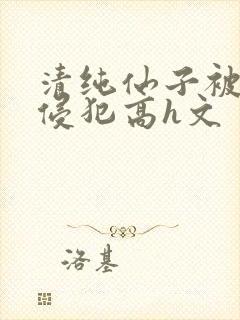 清纯仙子被
侵犯高h文
洛基